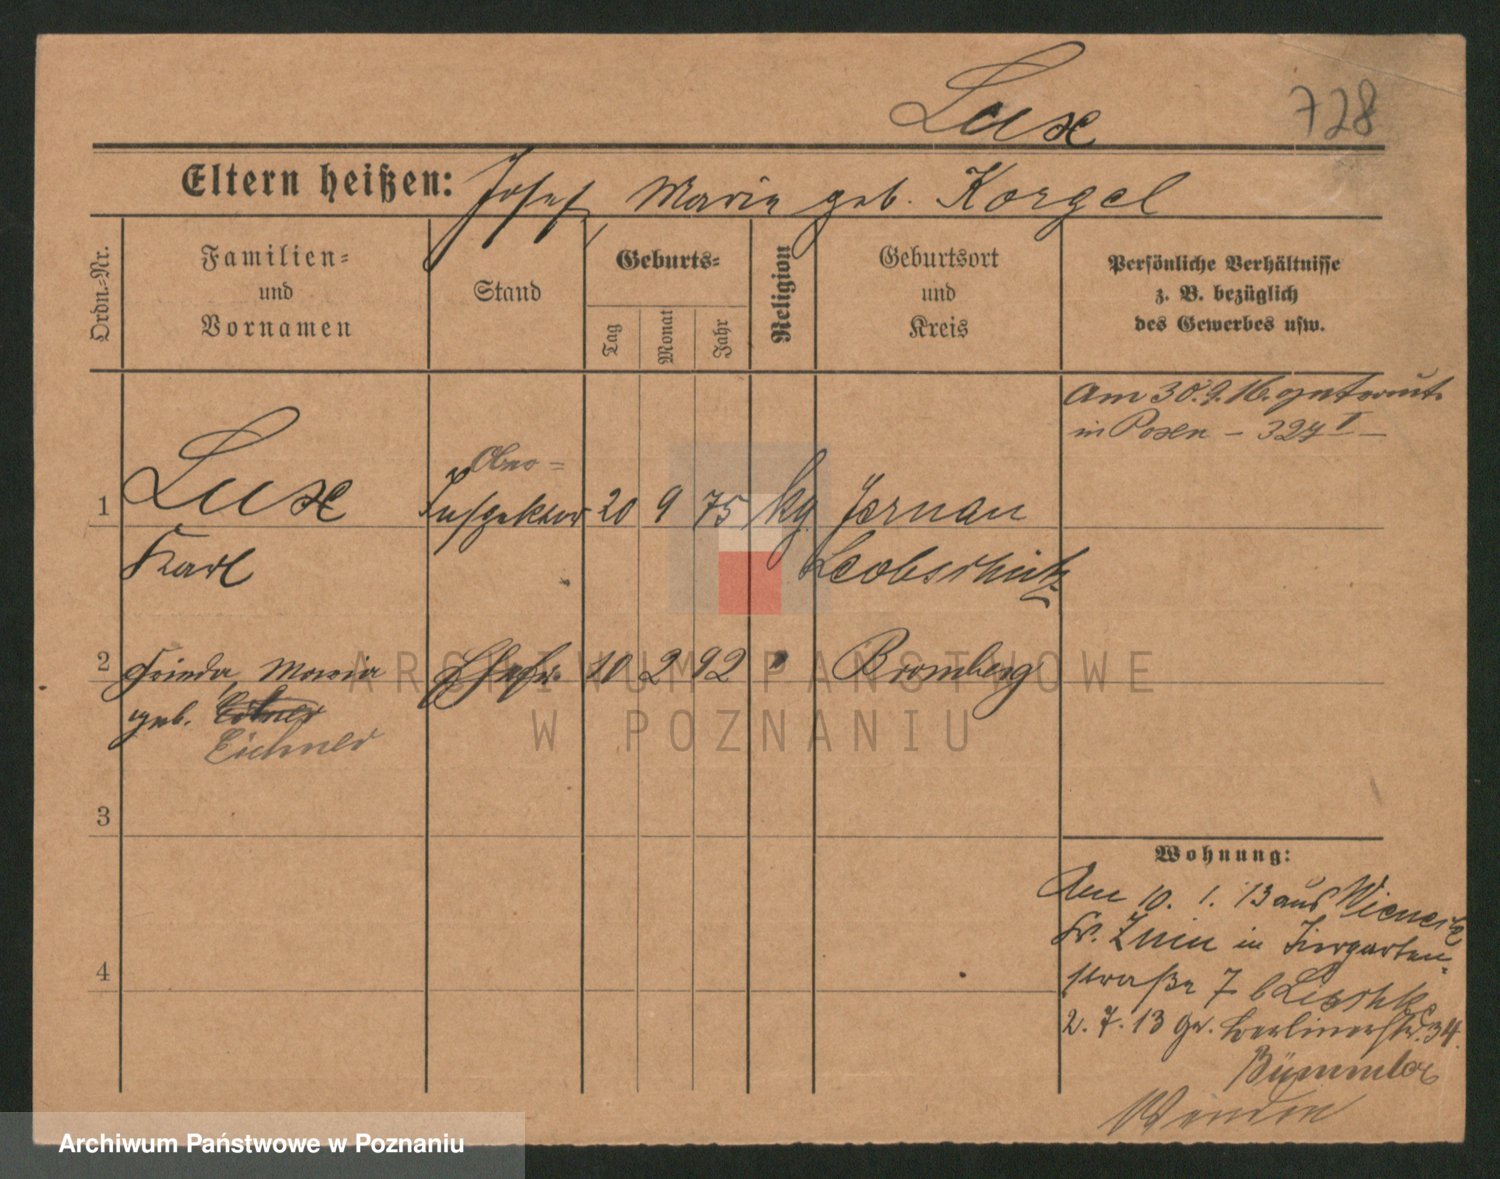 Lux
728
Eltern heißen: Josef, Marie geb. Korgel
Ordn.-Nr.
Familien-
und
Vornamen
Stand
Geburts-
Tag
Monat
Jahr
Religion
Geburtsort
und
Kreis
Persönliche Verhältnisse
z. B. bezüglich
des Gewerbes usw.
Am 30.9.16. getraut
in Posen – 327 II –
Ober=
1 Lux Inspektor 20 9 75 kg Jernau
Karl Leobschütz
2 Frieda, Maria Ehefr. 10 2 92 " Bromberg
geb.
Eichner
3
4
Wohnung:
Am 10. 1. 13 aus
Kr. Znin in Tiergarten-
straße 7 b
2. 7. 13 Gr. Berlinerstr. 34.
ARCHIWUM PAŃSTWOWE
W POZNANIU
Archiwum Państwowe w Poznaniu